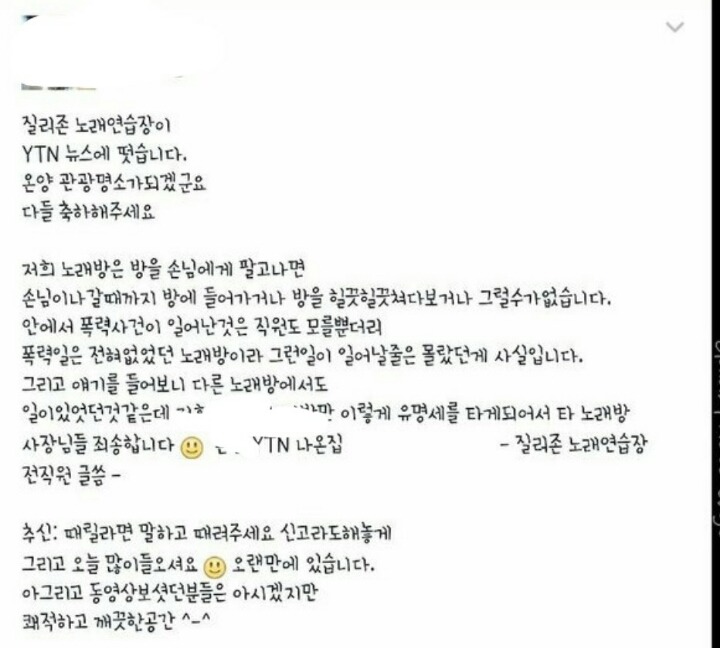 질리존 노래연습장이
YTN 뉴스에 떳습니다.
온양 관광명소가되겠군요
다들 축하해주세요
저희 노래방은 방을 손님에게 팔고나면
손님이나갈때까지 방에 들어가거나 방을 힐끗힐끗쳐다보거나 그럴수가없습니다.
안에서 폭력사건이 일어난것은 직원도 모를뿐더러
폭력일은 전혀없었던 노래방이라 그런일이 일어날줄은 몰랐던게 사실입니다.
그리고 얘기를 들어보니 다른 노래방에서도
일이있엇던것같은데 이렇게 유명세를 타게되어서 타 노래방
사장님들 죄송합니다 🙂 YTN 나온집 - 질리존 노래연습장
전직원 글씀 -
추신: 때릴라면 말하고 때려주세요 신고라도해놓게
그리고 오늘 많이들오셔요 🙂 오랜만에 있습니다.
아그리고 동영상보셧던분들은 아시겠지만
쾌적하고 깨끗한공간 ^-^